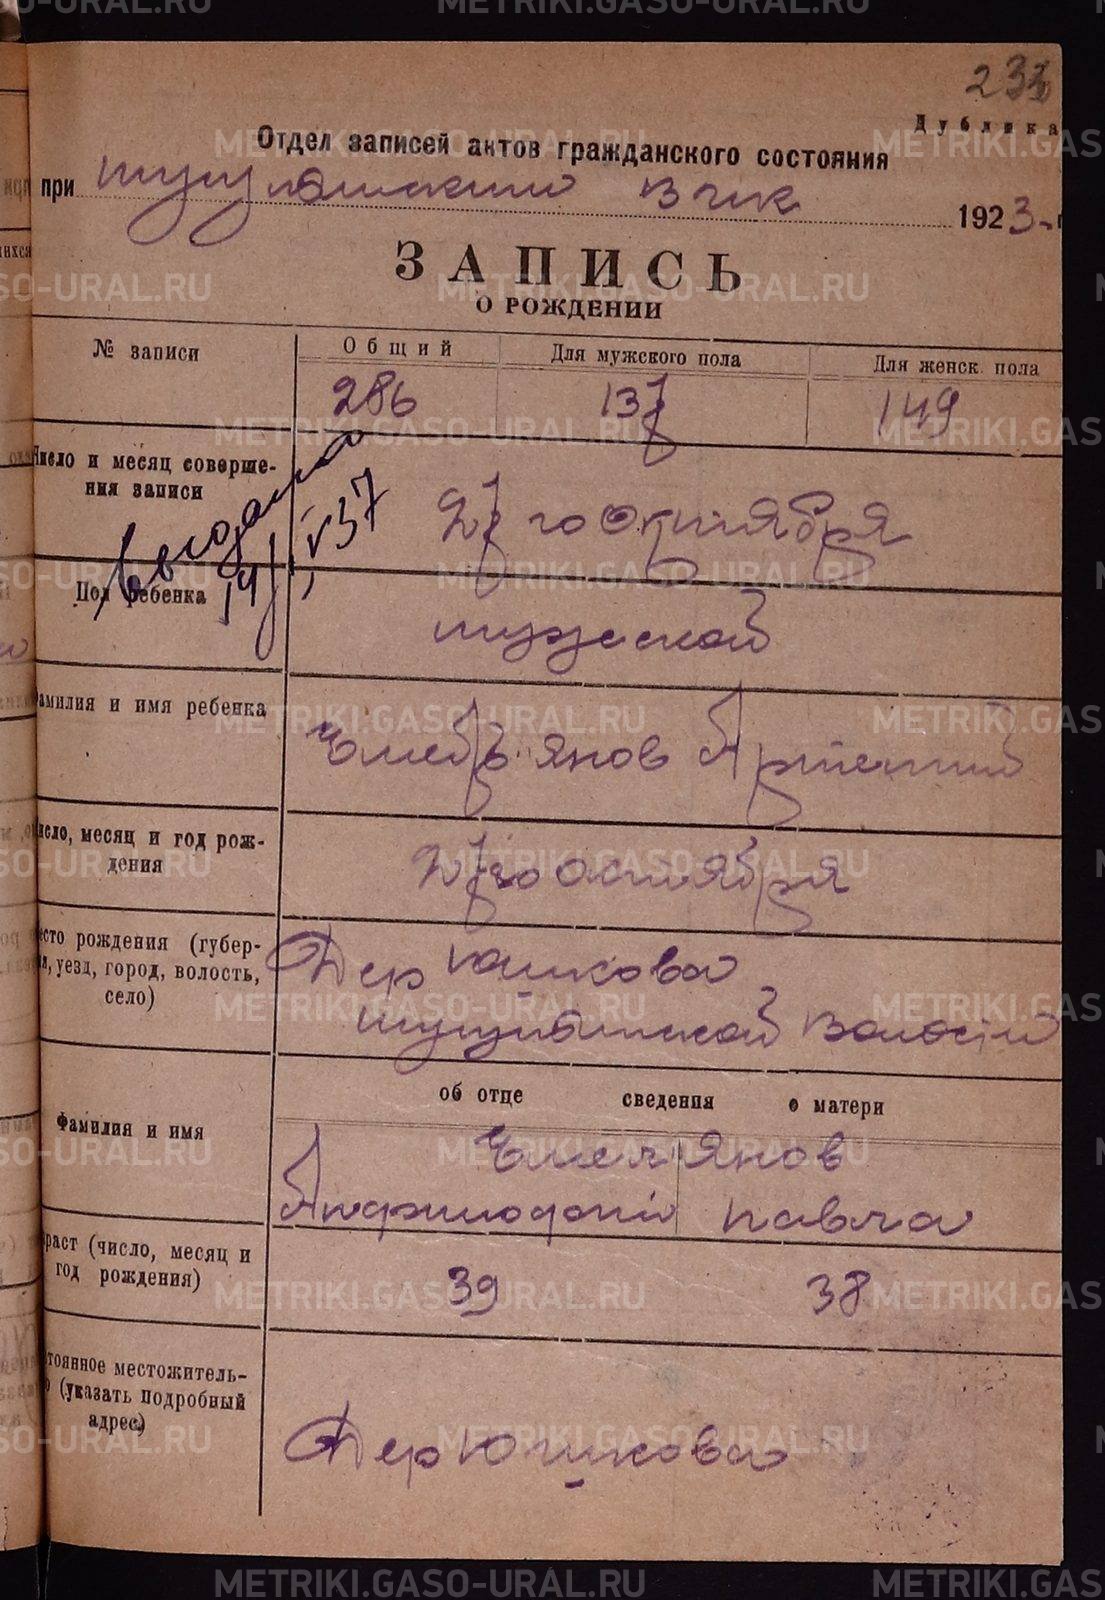 233
Дублика
Отдел записей актов гражданского состояния
при Шугуланским в и к 1923 г
ЗАПИСЬ
О РОЖДЕНИИ
№ записи
Общий
Для мужского пола
Для женск. пола
286
137
149
Число и месяц соверше-
ния записи
27 го Октября
выдана
14/IV 37
Пол ребенка
мужской
амилия и имя ребенка
Емелъянов Артемий
исло, месяц и год рож-
дения
27 го октября
есто рождения (губер-
я, уезд, город, волость,
село)
Дер Юшкова
волости
об отце сведения о матери
Фамилия и имя
Емельянов
Павла
раст (число, месяц и
год рождения)
39
38
тоянное местожитель-
о (указать подробный
адрес)
Дер Юшкова
METRIKI.GASO-URAL.RU